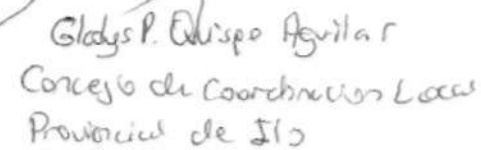 Gladys P. Quispe Aguilar
Concejo de Coordinacion Local
Provincial de Ilo